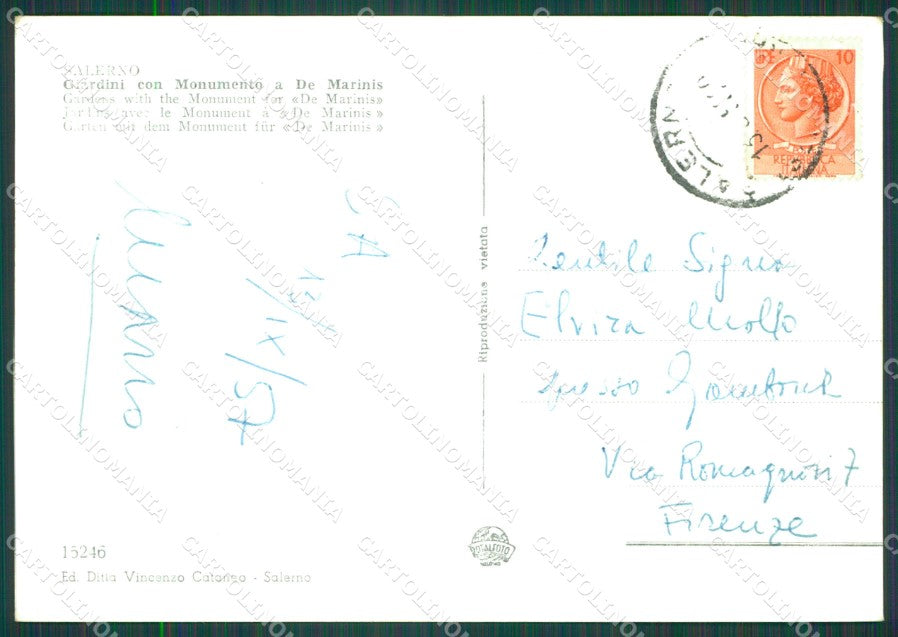 SALERNO
Giardini con Monumento a De Marinis
Gardens with the Monument for «De Marinis»
Jardins avec le Monument à «De Marinis»
Garten mit dem Monument für «De Marinis»
SA
15/IX/57
Riproduzione vietata
LIRE 10
REPVBBLICA
ITALIANA
SALERNO
Gentile Sig.na
Elvira Molfo
presso
Via Romagnosi 7
Firenze
15246
Ed. Ditta Vincenzo Calongo - Salerno
ROTALFOTO
MILANO
CARTOLINOMANIA